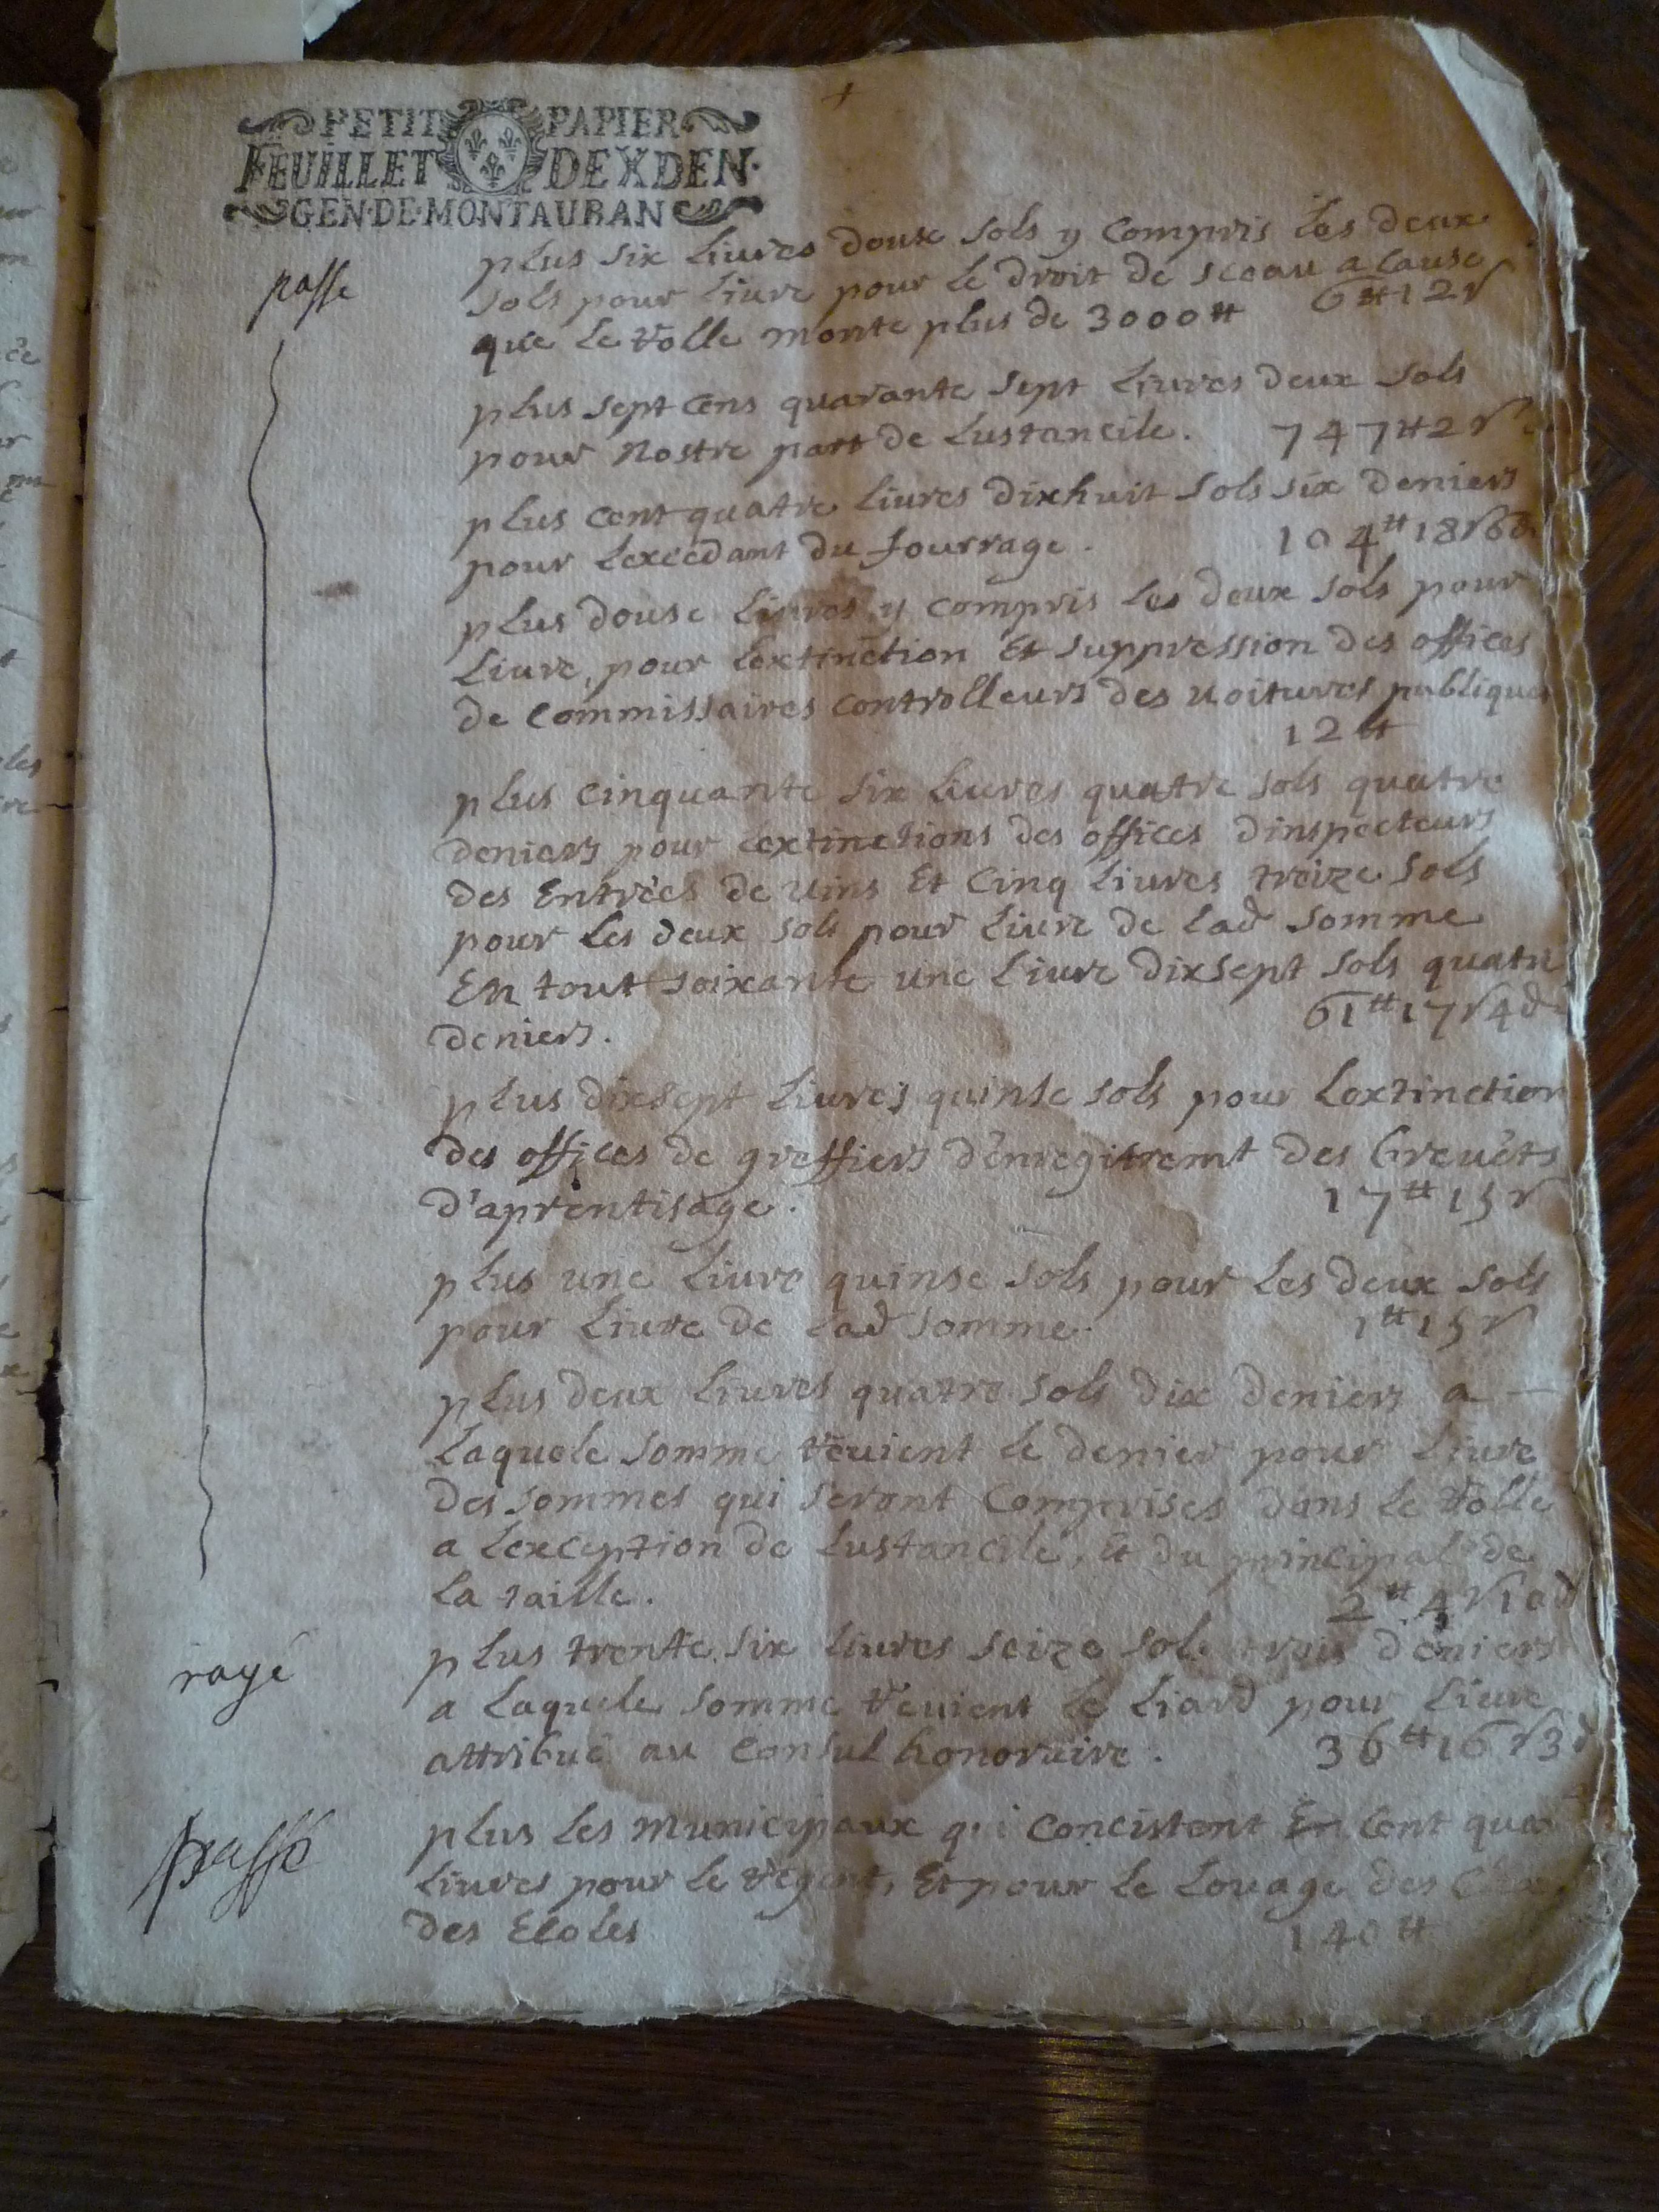 PETIT PAPIER
FEUILLET DE X DEN.
GEN·DE·MONTAUBAN
plus six liures douse sols y compris les deux
passe
sols pour liure pour le droit de sceau a cause
que le rolle monte plus de 3000# 6#12s
plus sept cens quarante sept liures deux sols
pour nostre part de lustancile. 747#2s
plus cent quatre liures dixhuit sols six deniers
pour lexcedant du fourrage. 104#18s6d
plus douse liures y compris les deux sols pour
liure, pour lextinction Et suppression des offices
de commissaires controlleurs des uoitures publiques
12#
plus cinquante six liures quatre sols quatre
deniers pour lextinctions des offices dinspecteurs
des Entrèes de uins Et cinq liures treize sols
pour les deux sols pour liure de lad somme
En tout soixante une liure dixsept sols quatre
deniers. 61#17s4d
plus dixsept liures quinse sols pour lextinction
des offices de greffiers d'enregitremt des breuèts
d'aprentisage. 17#15s
plus une liure quinse sols pour les deux sols
pour liure de lad somme. 1#15s
plus deux liures quatre sols dix deniers a
laquele somme reuient le denier pour liure
des sommes qui seront comprises dans le rolle
a lexception de lustancile, et du principal de
la taille. 2#4s10d
rayé
plus trente six liures seize sols trois deniers
a laquele somme reuient le liard pour liure
attribué au consul honoraire. 36#16s3d
passé
plus les municipaux qui concistent En cent
liures pour le regent, Et pour le louage des
des Ecoles 140#